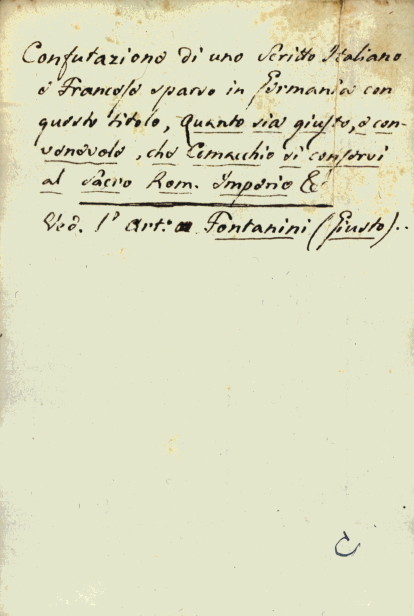 Confutazione di uno Scritto Italiano
e Francese sparso in Germania con
questo titolo, Quanto sia giusto, e con-
venevole, che Comacchio si conservi
al Sacro Rom. Imperio &c
Ved. l' Art.o Fontanini (Giusto)..
C